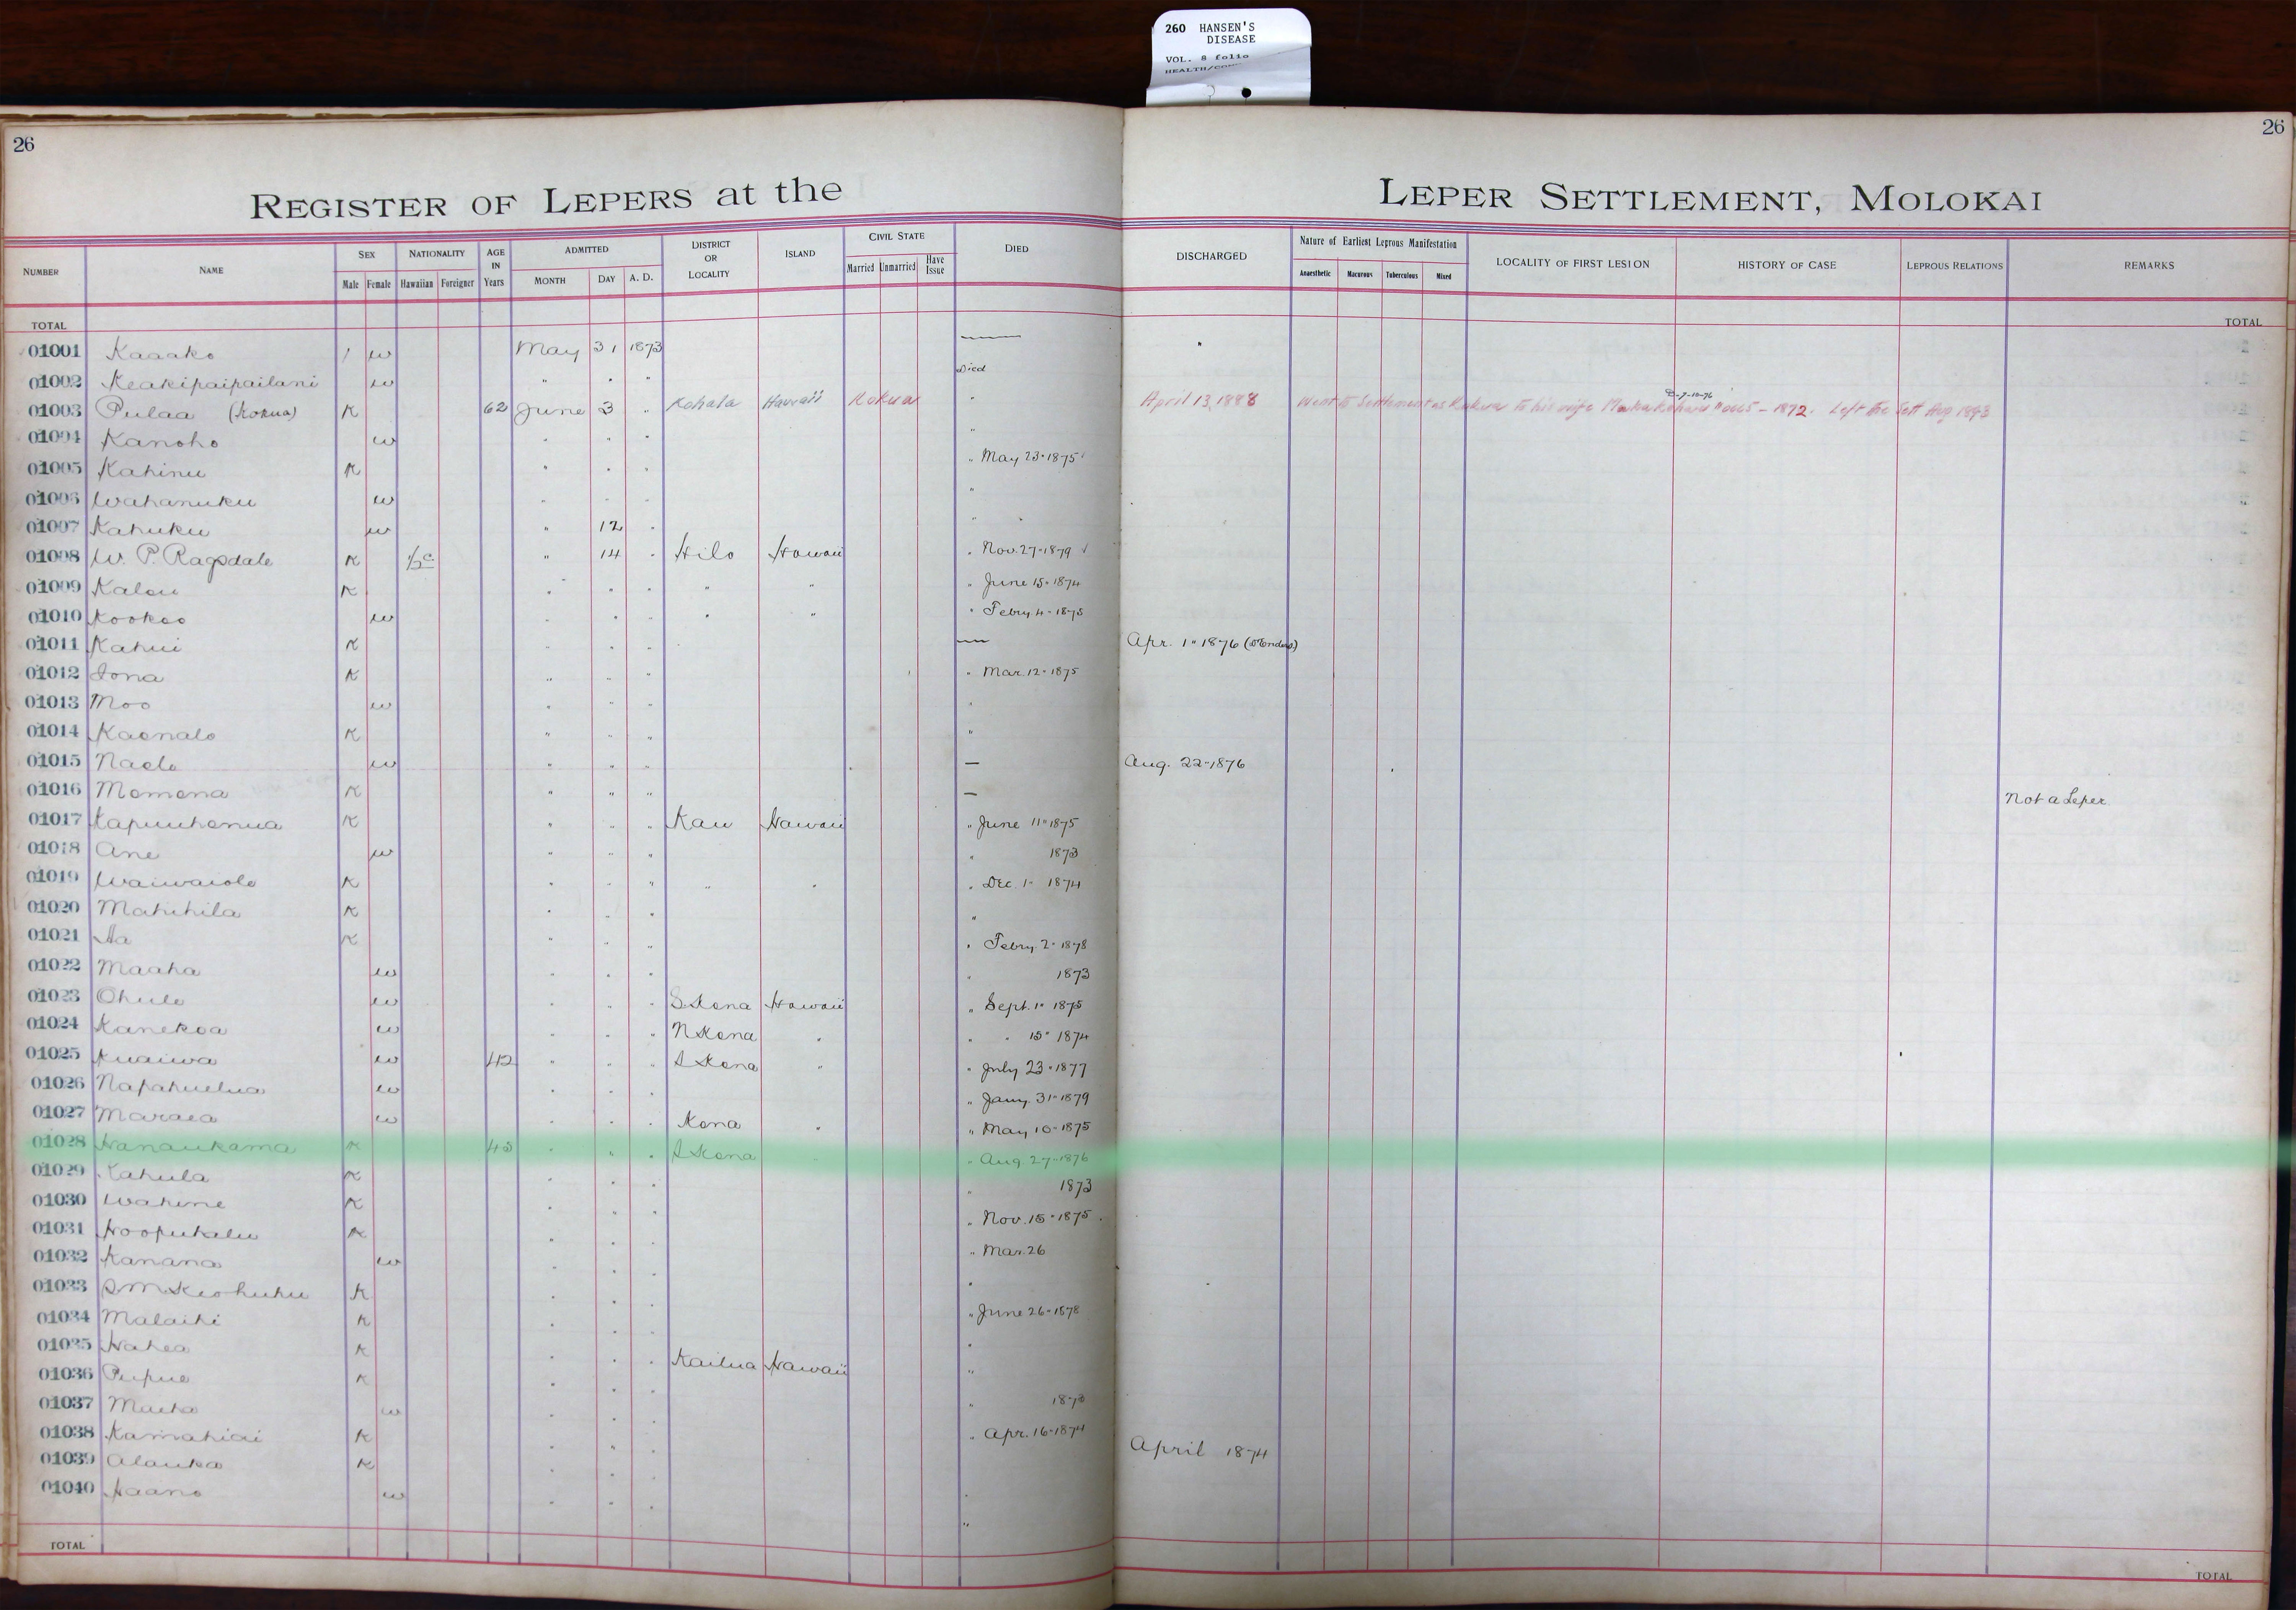 260 HANSEN'S
DISEASE
VOL. 8 folio
26
26
REGISTER OF LEPERS at the LEPER SETTLEMENT, MOLOKAI
NUMBER NAME SEX Male Female NATIONALITY Hawaiian Foreigner AGE IN Years ADMITTED MONTH DAY A. D. DISTRICT OR LOCALITY ISLAND CIVIL STATE Married Unmarried Have Issue DIED DISCHARGED Nature of Earliest Leprous Manifestation Anaesthetic Macurous Tuberculous Mixed LOCALITY OF FIRST LESION HISTORY OF CASE LEPROUS RELATIONS REMARKS
TOTAL TOTAL
01001 Kaaako w May 31 1873
01002 Keakipaipailani w " " " Died
01003 Pulaa (Kokua) K 62 June 3 " Kohala Hawaii Kokua " April 13, 1888 Went to Settlement as Kokua to his wife 1872. Left the Sett Aug 1893
01004 Kanoho w " " " "
01005 Kahinu K " " " " May 23 - 1875
01006 Wahanuku w " " " "
01007 Kahuku w " 12 " "
01008 W. P. Ragsdale K ½ c " 14 " Hilo Hawaii " Nov. 27 - 1879
01009 Kalou K " " " " " " June 15 - 1874
01010 Kookoo w " " " " " " Febry 4 - 1875
01011 Kahui K " " " — Apr. 1 " 1876
01012 Iona K " " " " Mar. 12 - 1875
01013 Moo w " " " "
01014 Kaonalo K " " " "
01015 Naolo w " " " — Aug. 22 - 1876
01016 Momona K " " " — Not a Leper
01017 Kapuuhonua K " " " Kau Hawaii " June 11 " 1875
01018 Ane w " " " " 1873
01019 Waiwaiole K " " " " " " Dec. 1 - 1874
01020 Mahihila K " " " "
01021 Aa K " " " " Febry. 2 - 1878
01022 Maaha w " " " " 1873
01023 Ohule w " " " S Kona Hawaii " Sept. 1 " 1875
01024 Kanekoa w " " " N Kona " " " 15 " 1874
01025 Kuaiwa w 42 " " " S Kona " " July 23 - 1877
01026 Napahuelua w " " " " Jany. 31 - 1879
01027 Maraea w " " " Kona " " May 10 - 1875
01028 Hanaukama K 45 " " " S Kona " Aug. 27 - 1876
01029 Kahula K " " " " 1873
01030 Wahine K " " " " Nov. 15 - 1875
01031 Hoopukalu K " " " " Mar. 26
01032 Kanana w " " " "
01033 S M Keohuhu K " " " " June 26 - 1878
01034 Malaihi K " " " "
01035 Hahea K " " " Kailua Hawaii "
01036 Pupue K " " " " 1873
01037 w " " " " Apr. 16 - 1874
01038 Kamahiai K " " " April 1874
01039 Alauka K " " " "
01040 Haano w " " " "
TOTAL TOTAL